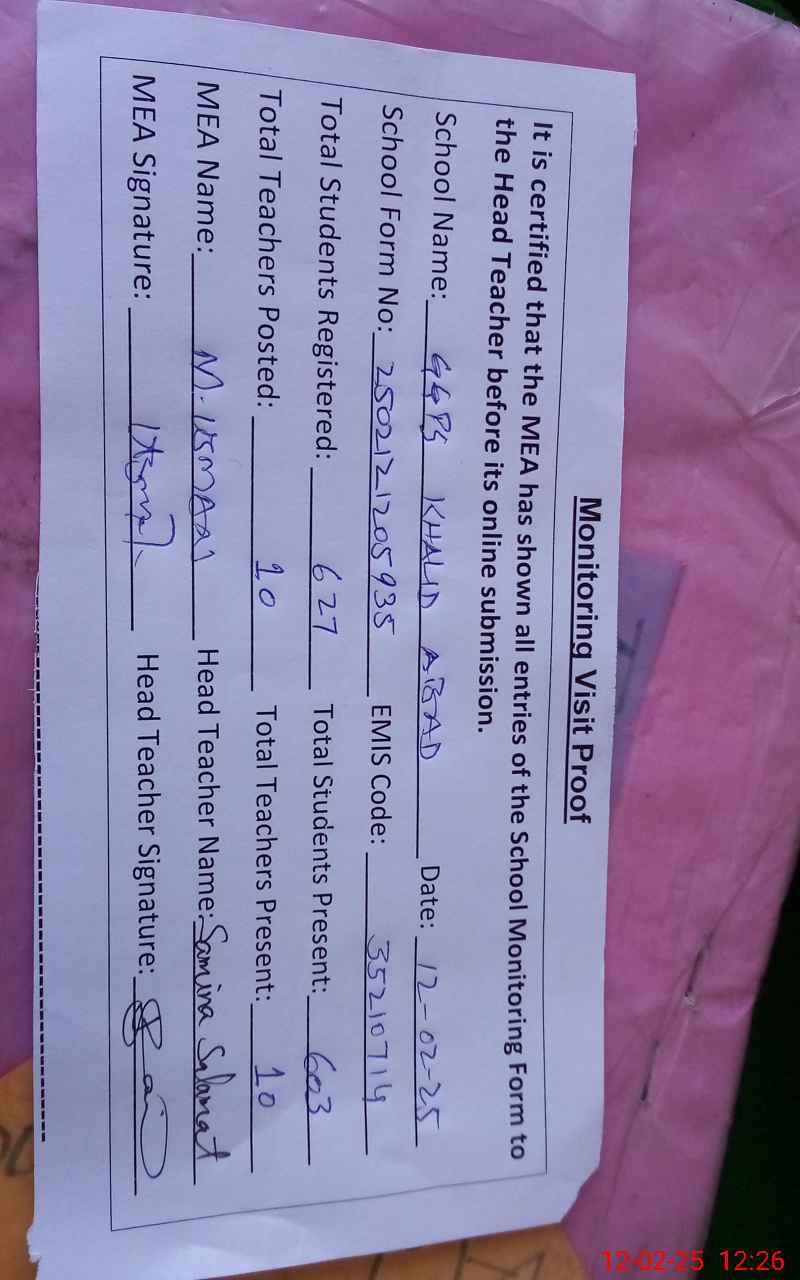 Monitoring Visit Proof
It is certified that the MEA has shown all entries of the School Monitoring Form to
the Head Teacher before its online submission.
School Name: GGPS KHALID ABAD Date: 12-02-25
School Form No: 2502121205935 EMIS Code: 35210714
Total Students Registered: 627 Total Students Present: 603
Total Teachers Posted: 10 Total Teachers Present: 10
MEA Name: M. Head Teacher Name: Samina Salamat
MEA Signature: Head Teacher Signature:
12-02-25 12:26